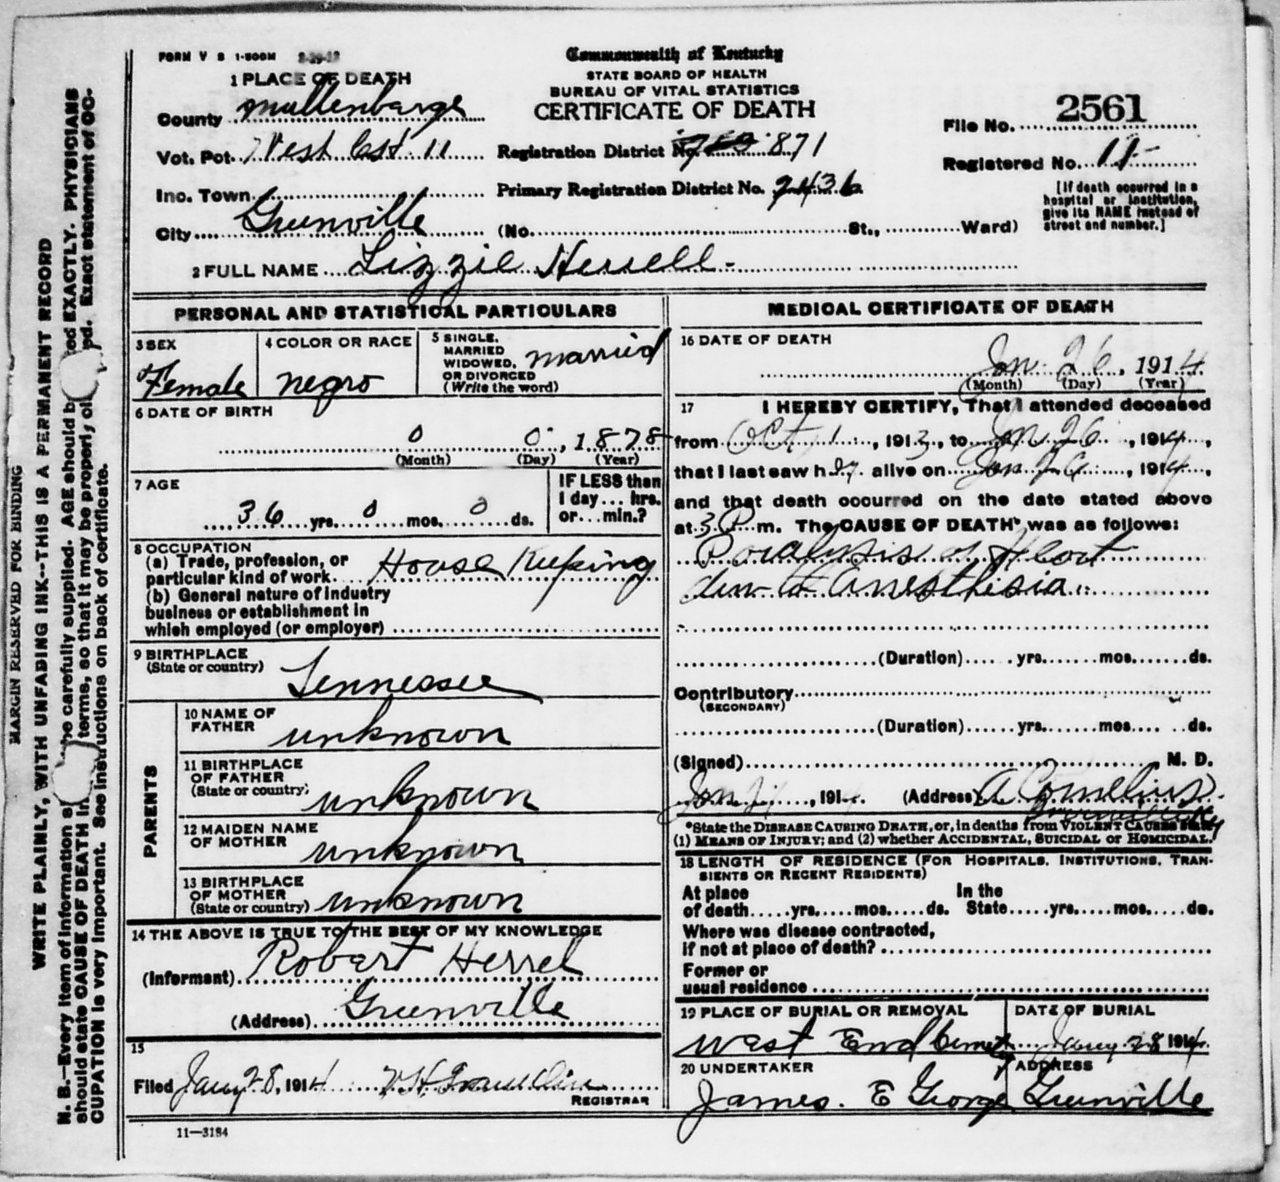 FORM V S 1-500M
Commonwealth of Kentucky
STATE BOARD OF HEALTH
BUREAU OF VITAL STATISTICS
CERTIFICATE OF DEATH
1 PLACE OF DEATH
County Muhlenbarge
Vot. Pct. West Cst 11
Registration District No. 871
File No. 2561
Registered No. 11
Inc. Town
Primary Registration District No. 2436
[If death occurred in a
hospital or institution,
give its NAME instead of
street and number.]
City Greenville (No. St., Ward)
2 FULL NAME Lizzie Herrell
PERSONAL AND STATISTICAL PARTICULARS
3 SEX Female
4 COLOR OR RACE negro
5 SINGLE,
MARRIED
WIDOWED,
OR DIVORCED
(Write the word) married
6 DATE OF BIRTH
0 0, 1878
(Month) (Day) (Year)
7 AGE
36 yrs. 0 mos. 0 ds.
IF LESS than
1 day... hrs.
or...min.?
8 OCCUPATION
(a) Trade, profession, or
particular kind of work House Keeping
(b) General nature of industry
business or establishment in
which employed (or employer)
9 BIRTHPLACE
(State or country) Tennessee
PARENTS
10 NAME OF
FATHER unknown
11 BIRTHPLACE
OF FATHER
(State or country) unknown
12 MAIDEN NAME
OF MOTHER unknown
13 BIRTHPLACE
OF MOTHER
(State or country) unknown
14 THE ABOVE IS TRUE TO THE BEST OF MY KNOWLEDGE
(Informant) Robert Herrel
(Address) Greenville
15
Filed Jany 28, 1914
REGISTRAR
11-3184
MEDICAL CERTIFICATE OF DEATH
16 DATE OF DEATH
Jan 26, 1914
(Month) (Day) (Year)
17 I HEREBY CERTIFY, That I attended deceased
from Oct 1, 1913, to Jan 26, 1914,
that I last saw her alive on Jan 26, 1914,
and that death occurred on the date stated above
at 3 P m. The CAUSE OF DEATH* was as follows:
Paralysis of Heart
due to Anesthesia
(Duration) yrs. mos. ds.
Contributory
(SECONDARY)
(Duration) yrs. mos. ds.
(Signed) M. D.
Jan, 1914. (Address) A Cornelius
*State the DISEASE CAUSING DEATH, or, in deaths from VIOLENT CAUSES
(1) MEANS OF INJURY; and (2) whether ACCIDENTAL, SUICIDAL or HOMICIDAL.
18 LENGTH OF RESIDENCE (FOR HOSPITALS, INSTITUTIONS, TRAN-
SIENTS OR RECENT RESIDENTS)
At place In the
of death yrs. mos. ds. State yrs. mos. ds.
Where was disease contracted,
if not at place of death?
Former or
usual residence
19 PLACE OF BURIAL OR REMOVAL
West End Cemety
DATE OF BURIAL
Jany 28 1914.
20 UNDERTAKER
James. E George
ADDRESS
Greenville
MARGIN RESERVED FOR BINDING
WRITE PLAINLY, WITH UNFADING INK--THIS IS A PERMANENT RECORD
N. B.--Every item of information carefully supplied. AGE should EXACTLY. PHYSICIANS
should state CAUSE OF DEATH in terms, so that it may be properly Exact statement of OC-
CUPATION is very important. See instructions on back of certificate.